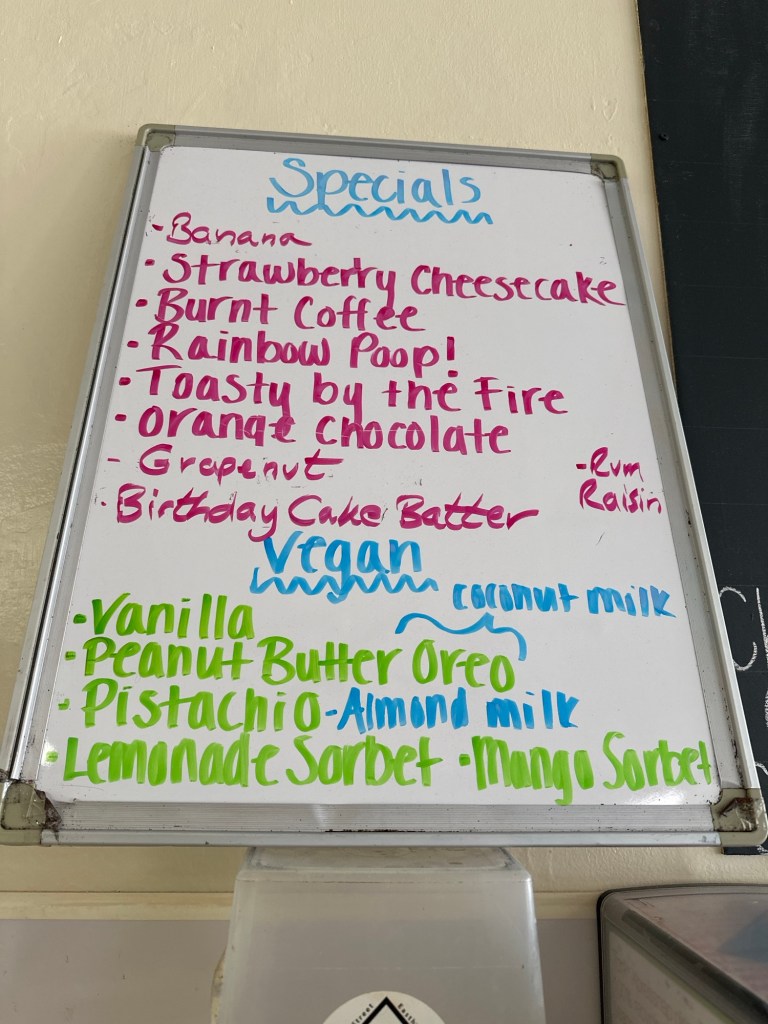 Specials
-Banana
·Strawberry Cheesecake
·Burnt Coffee
·Rainbow Poop!
·Toasty by the Fire
·Orange Chocolate
-Grapenut
-Rum
Raisin
·Birthday Cake Batter
Vegan
coconut milk
·Vanilla
·Peanut Butter Oreo
·Pistachio-Almond milk
·Lemonade Sorbet ·Mango Sorbet